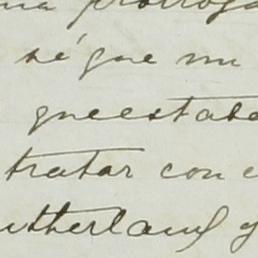 una prorroga
sé que mi
que estab
tratar con e
utherland y